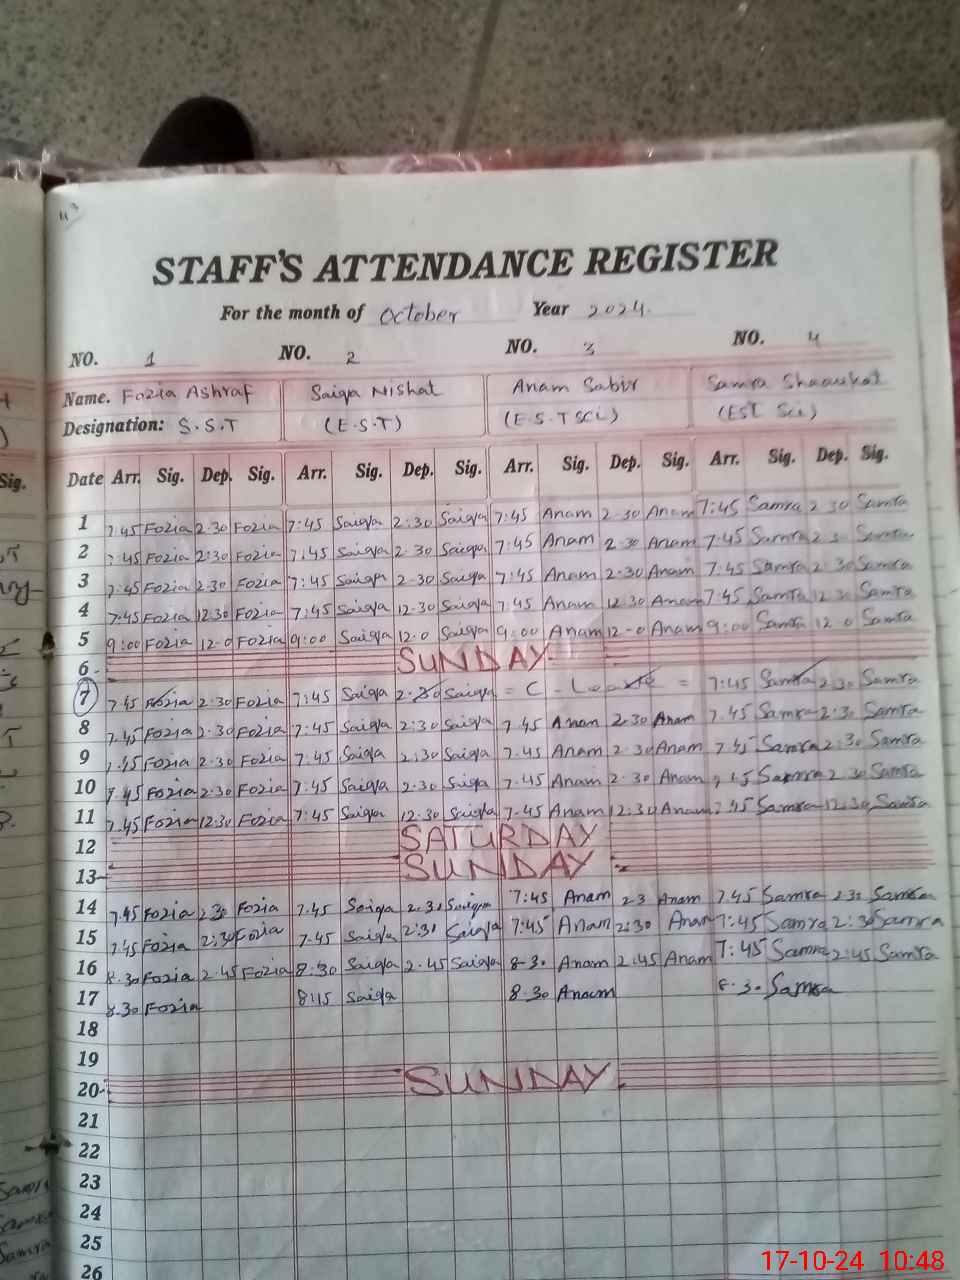 43
STAFF'S ATTENDANCE REGISTER
For the month of October Year 2024.
NO. 1 NO. 2 NO. 3 NO. 4
Name. Fozia Ashraf Saiqa Nishat Anam Sabir Samra Shaoukat
Designation: S.S.T (E.S.T) (E.S.T Sci) (EST Sci)
Sig. Date Arr. Sig. Dep. Sig. Arr. Sig. Dep. Sig. Arr. Sig. Dep. Sig. Arr. Sig. Dep. Sig.
1 7.45 Fozia 2.30 Fozia 7:45 Saiqa 2:30 Saiqa 7:45 Anam 2.30 Anam 7:45 Samra 2 30 Samra
2 7:45 Fozia 2:30 Fozia 7:45 Saiqa 2.30 Saiqa 7:45 Anam 2.30 Anam 7.45 Samra Samra
3 7:45 Fozia 2.30 Fozia 7:45 Saiqa 2.30 Saiqa 7:45 Anam 2.30 Anam 7.45 Samra 2 30 Samra
4 7.45 Fozia 12.30 Fozia 7:45 Saiqa 12.30 Saiqa 7.45 Anam 12.30 Anam 7.45 Samra 12 30 Samra
5 9:00 Fozia 12-0 Fozia 9:00 Saiqa 12.0 Saiqa 9:00 Anam 12-0 Anam 9:00 Samra 12 0 Samra
6 SUNDAY
7 7.45 Fozia 2.30 Fozia 7:45 Saiqa 2.30 Saiqa = C - Leave = 7:45 Samra 2.30 Samra
8 7.45 Fozia 2.30 Fozia 7:45 Saiqa 2:30 Saiqa 7.45 Anam 2.30 Anam 7.45 Samra 2.30 Samra
9 7.45 Fozia 2.30 Fozia 7.45 Saiqa 2.30 Saiqa 7.45 Anam 2.30 Anam 7.45 Samra 2:30 Samra
10 7.45 Fozia 2.30 Fozia 7.45 Saiqa 2.30 Saiqa 7.45 Anam 2.30 Anam Samra 2 30 Samra
11 7.45 Fozia 12.30 Fozia 7:45 Saiqa 12.30 Saiqa 7.45 Anam 12.30 Anam 7.45 Samra 12.30 Samra
12 SATURDAY
13 SUNDAY
14 7.45 Fozia 2.30 Fozia 7.45 Saiqa 2.30 Saiqa 7:45 Anam 2.3 Anam 7.45 Samra 2.30 Samra
15 7.45 Fozia 2:30 Fozia 7.45 Saiqa 2:30 Saiqa 7:45 Anam 2:30 Anam 7:45 Samra 2:30 Samra
16 8.30 Fozia 2.45 Fozia 8:30 Saiqa 2.45 Saiqa 8-30 Anam 2.45 Anam 7:45 Samra 2:45 Samra
17 8.30 Fozia 8:15 Saiqa 8.30 Anam 8.30 Samra
18
19
20 SUNDAY
21
22
23
24
25
26
17-10-24 10:48